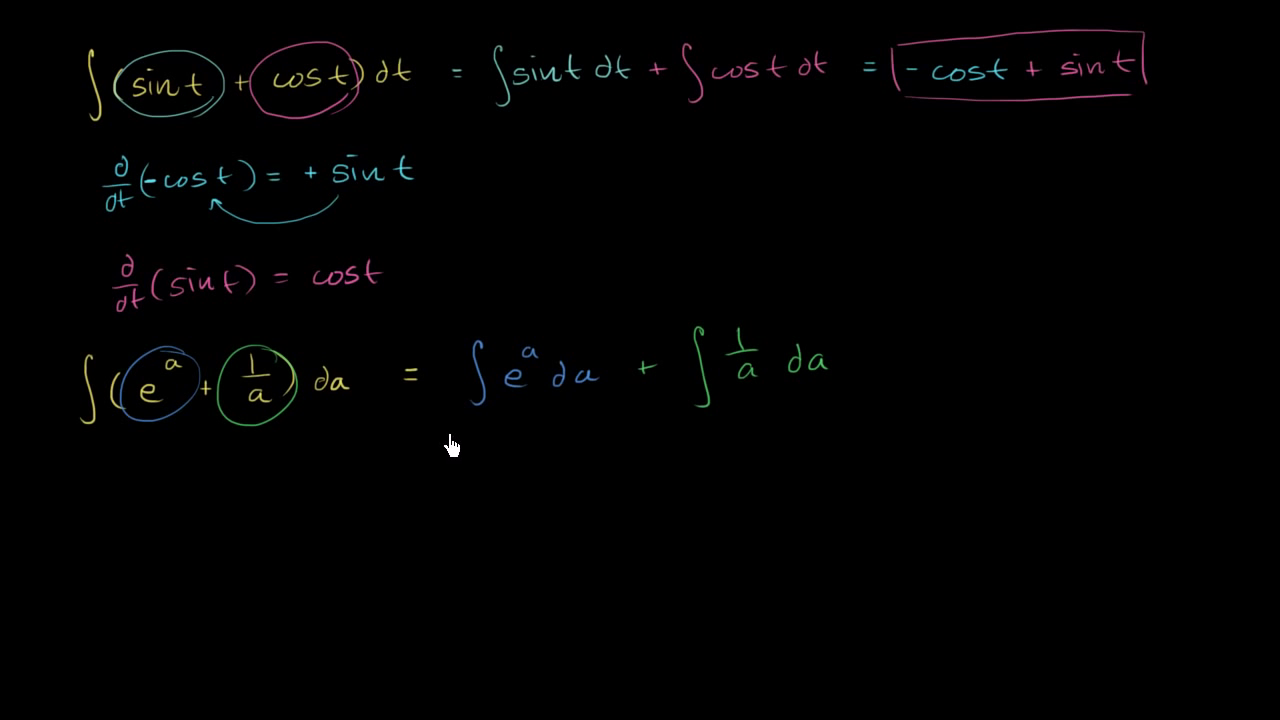 ∫(sin t + cos t) dt = ∫sin t dt + ∫cos t dt = -cos t + sin t
d/dt(-cos t) = + sin t
d/dt(sin t) = cos t
∫(e^a + 1/a) da = ∫e^a da + ∫1/a da